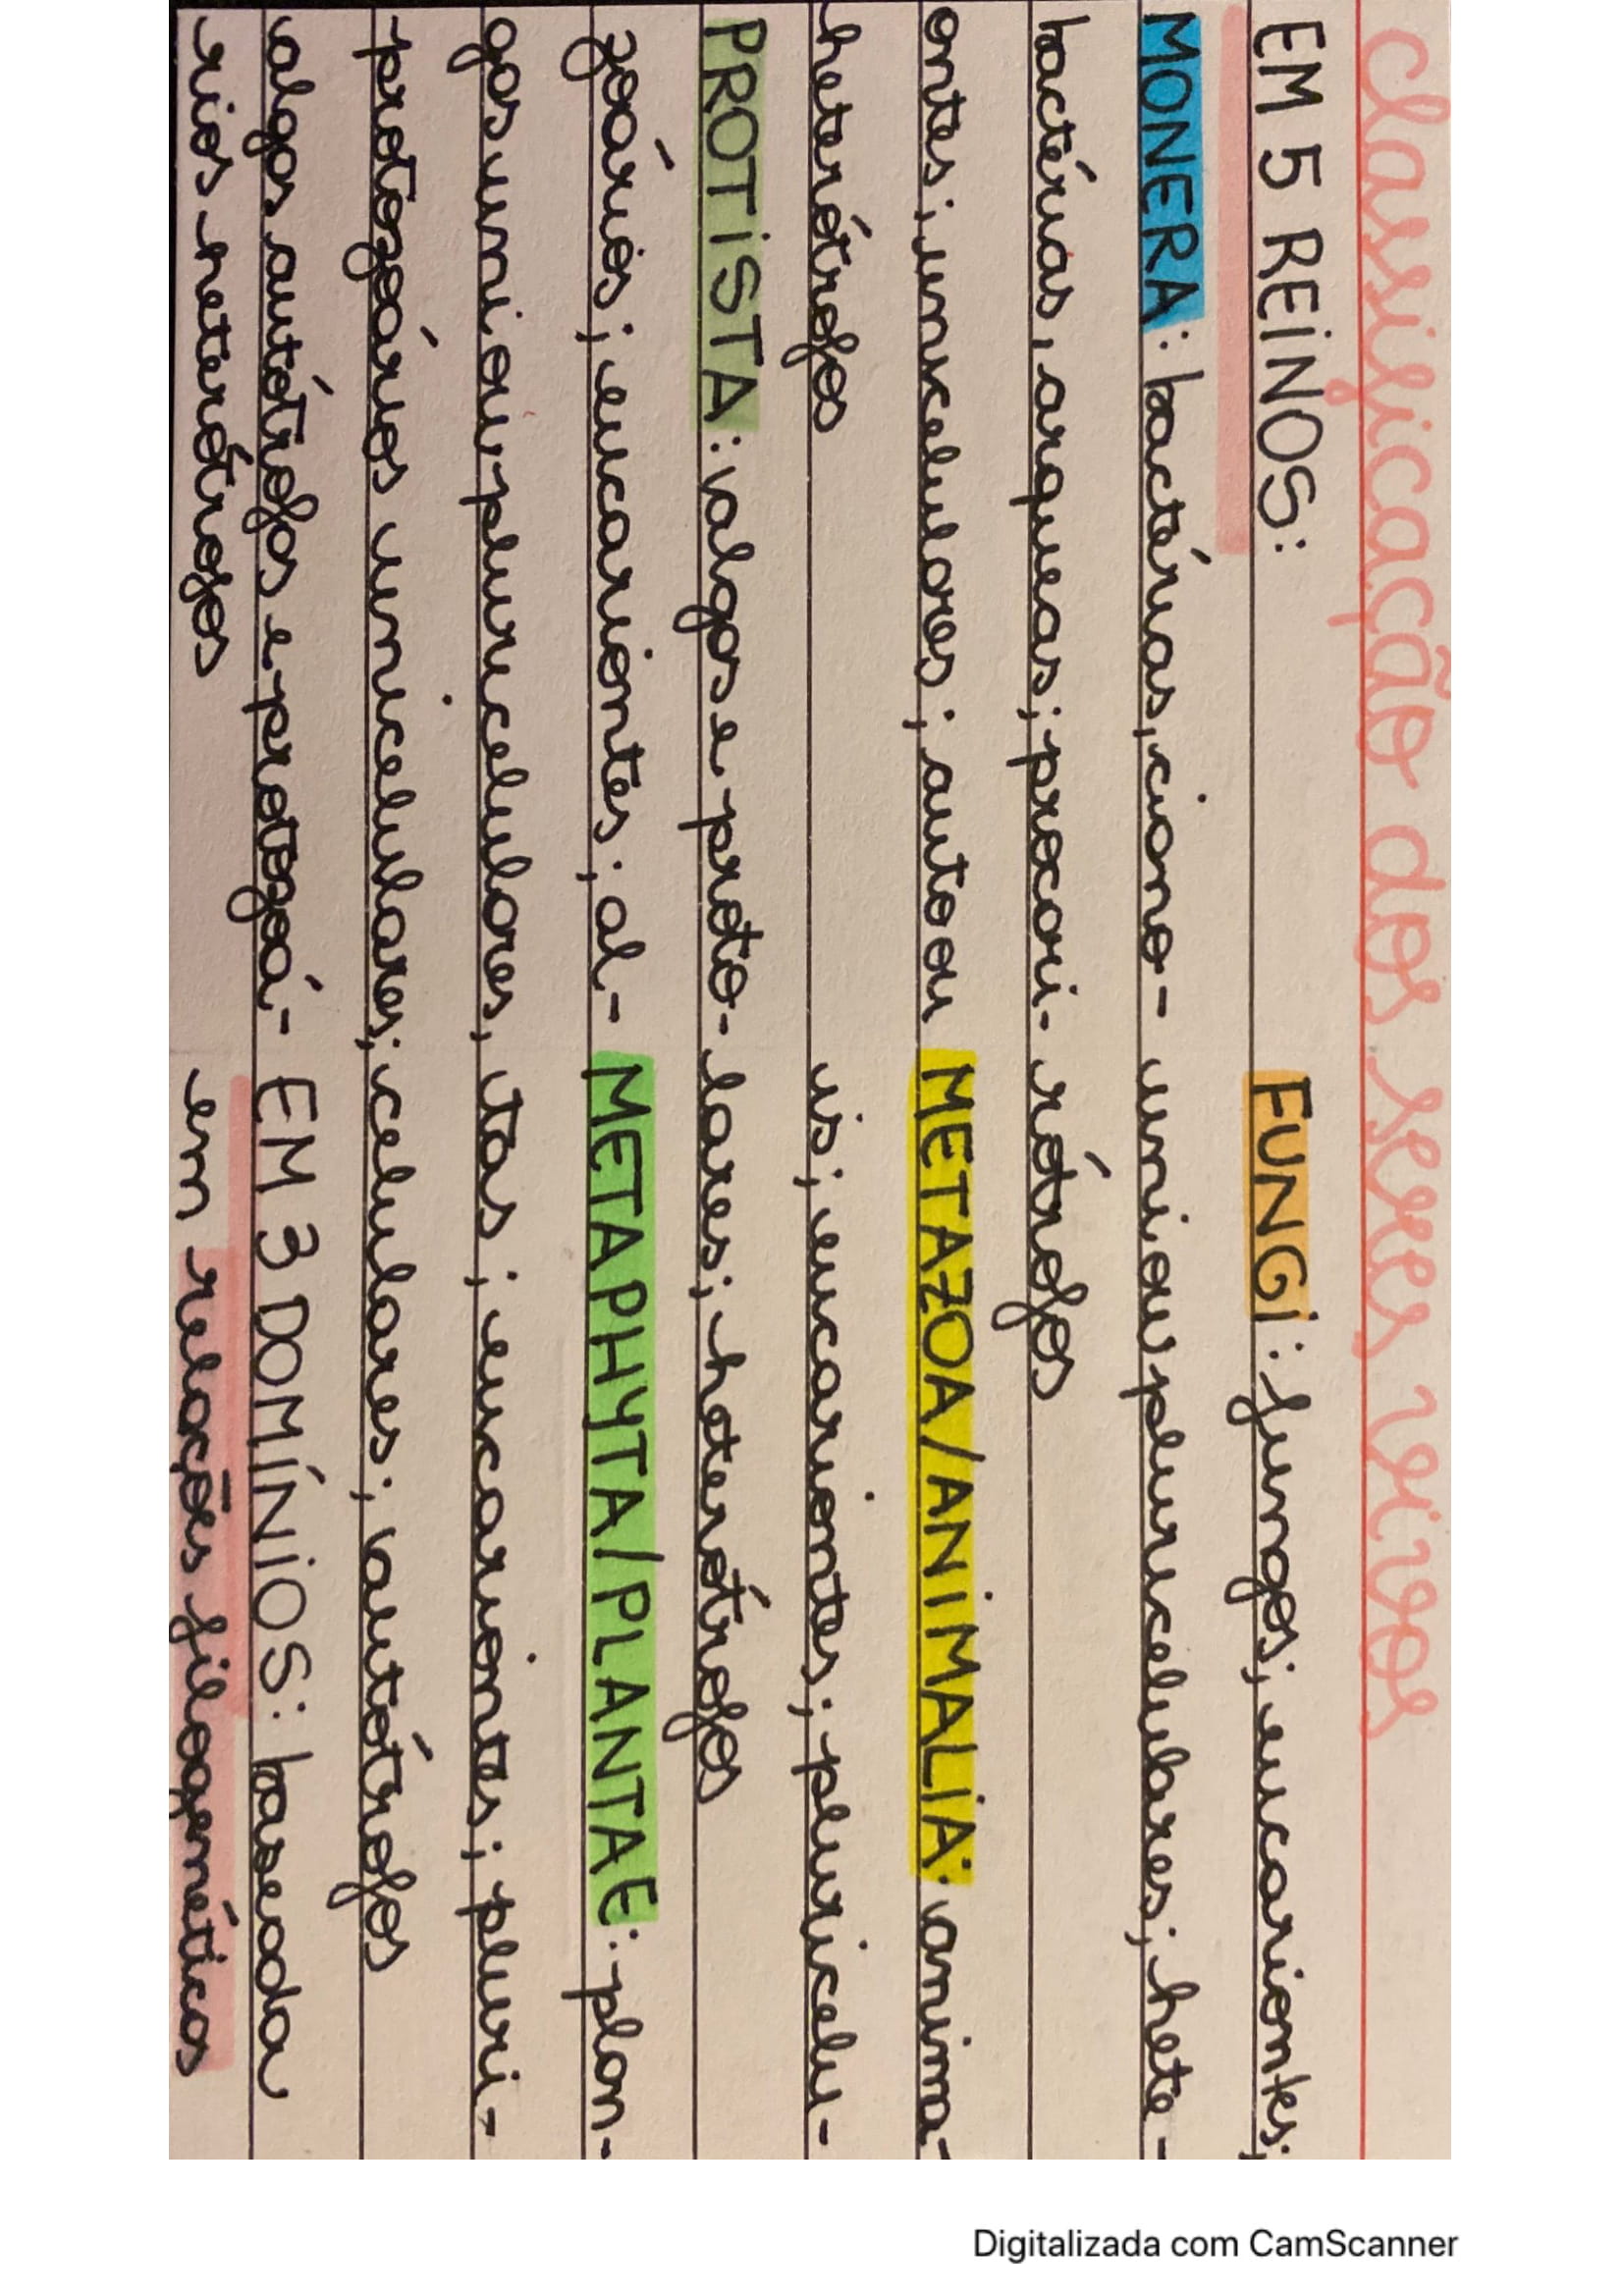 classificação dos seres vivos
EM 5 REINOS:
MONERA: bactérias, ciano-
bactérias, arqueas; procari-
ontes; unicelulares; auto ou
heterótrofos
PROTISTA: algas e proto-
zoários; eucariontes; al-
gas uni ou pluricelulares,
protozoários unicelulares;
algas autótrofos e protozoá-
rios heterótrofos
FUNGI: fungos; eucariontes;
uni ou pluricelulares; hete-
rótrofos
METAZOA/ANIMALIA: anima-
is; eucariontes; pluricelu-
lares; heterótrofos
METAPHYTA/PLANTAE: plan-
tas; eucariontes; pluri-
celulares; autótrofos
EM 3 DOMÍNIOS: baseada
em relações filogenéticas
Digitalizada com CamScanner